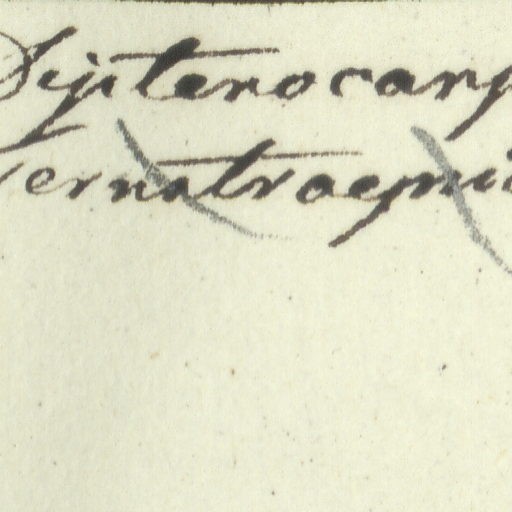 Dipterocarp
Ternstroemi